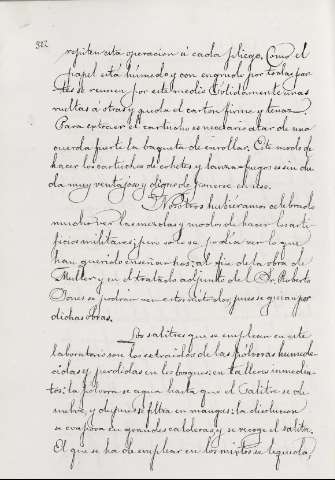 312
repiten esta operacion á cada pliego. Como el
papel está húmedo y con engrudo por todas par-
tes se reunen por este medio sólidamente unas
vueltas á otras y queda el carton firme y tenaz.
Para extraer el cartucho es necesario atar de una
cuerda fuerte la baqueta de enrollar. Este modo de
hacer los cartuchos de cohetes y lanza-fuegos es sin du-
da muy ventajoso y digno de ponerse en uso.
Nosotros hubiéramos celebrado
mucho ver las mezclas y modos de hacer los arti-
ficios militares; pero solo se podía ver lo que
han querido enseñarnos; al fin de la obra de
Muller y en el tratado adjunto del Sr. Roberto
Jones se podrán ver estos métodos, pues se guian por
dichas obras.
Los salitres que se emplean en este
laboratorio son los extraidos de las pólvoras humede-
cidas y perdidas en los buques: en talleres inmedia-
tos: la pólvora se agua hasta que el salitre se di-
suelve, y despues se filtra en mangas: la disolucion
se evapora en grandes calderas y se recoge el salitre.
El que se ha de emplear en los mixtos se liquida,